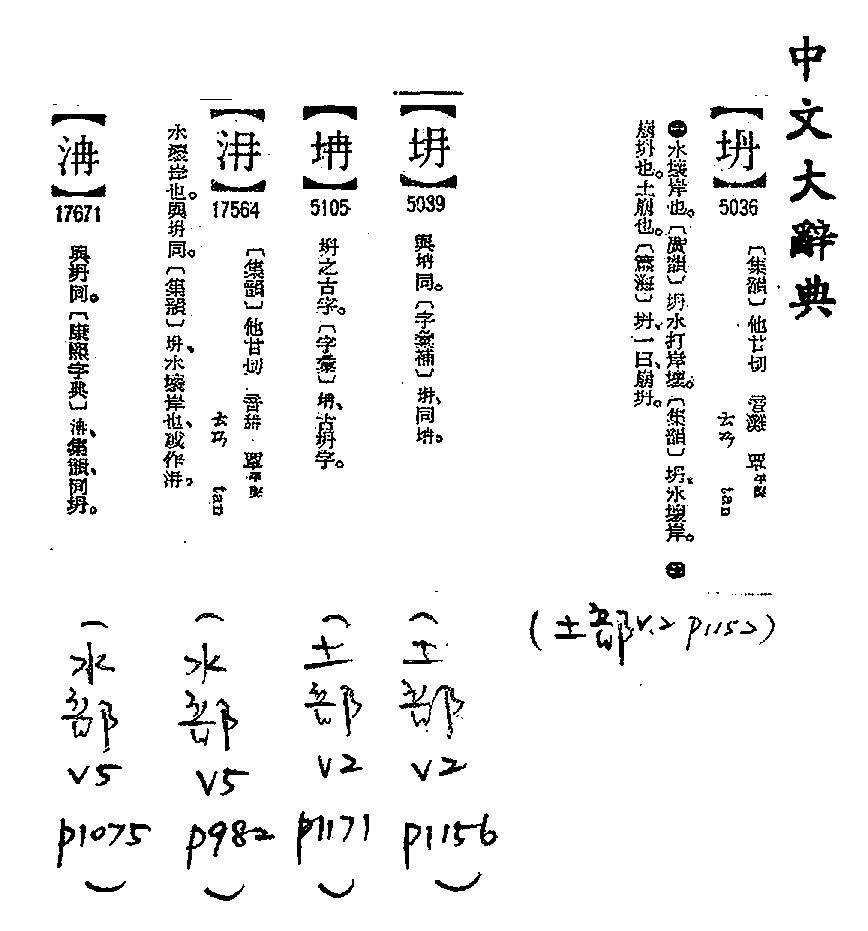 中文大辭典
【坍】
5036
〔集韻〕他甘切 音灘 覃平聲
ㄊㄢ tan
㊀水壞岸也。〔廣韻〕坍水打岸壞。〔集韻〕坍、水壞岸。㊁
崩坍也。土崩也。〔篇海〕坍、一曰、崩坍。
(土部v.2 p1152)
5039
與坍同。〔字彙補〕坍、同坍。
(土部 v2 p1156)
5105
坍之古字。〔字彙〕坍、古坍字。
(土部 v2 p1171)
17564
〔集韻〕他甘切 音坍 覃平聲
ㄊㄢ tan
水壞岸也。與坍同。〔集韻〕坍、水壞岸也、或作
(水部 v5 p982)
17671
與坍同。〔康熙字典〕集韻、同坍。
(水部 v5 p1075)